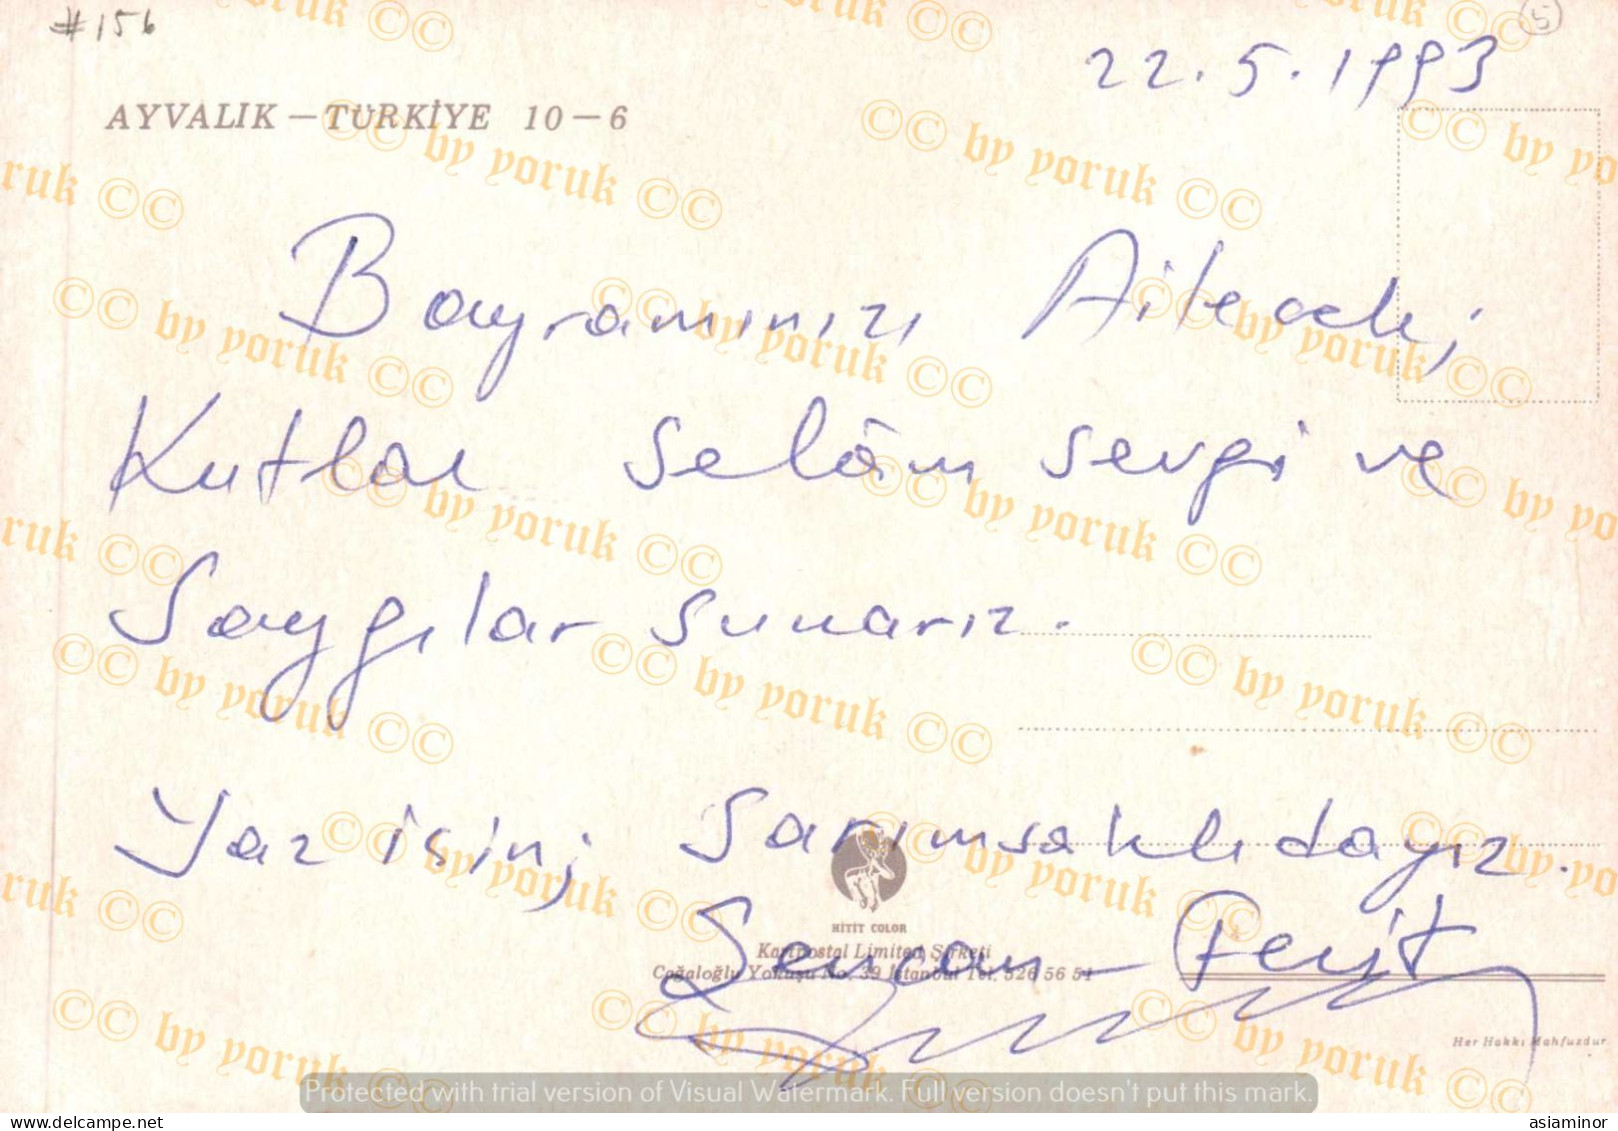 #156
5
22.5.1993
AYVALIK — TÜRKİYE 10 — 6
Bayramınızı Ailecek;
Kutlar selâm sevgi ve
Saygılar sunarız.
Yaz isin; Sarımsaklıdayız.
HİTİT COLOR
Kartpostal Limited Şirketi
Cağaloğlu Yokuşu No. 39 İstanbul Tel. 526 56 51
Her Hakkı Mahfuzdur
©© by yoruk ©©
Protected with trial version of Visual Watermark. Full version doesn't put this mark.
www.delcampe.net
asiaminor